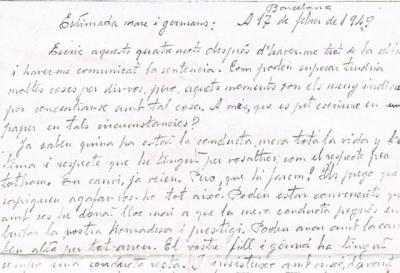 Barcelona
Estimada mare i germans: A 17 de febrer de 1949
Escric aquests quatre mots després d'haver-me tret de la cel·la
i haver-me comunicat la sentencia. Com podeu suposar tindria
moltes coses per dir-vos, pero, aquets moments son els menys indicats
per concentrar-se amb tal cosa. A més, que es pot escriure en un
paper en tals circumstancies?
Ja sabeu quina ha estat la conducta meva tota la vida y l'es
tima i respecte que he tingut per vosaltres, com el respecte per a
tothom. En canvi, ja veieu. Pero, que hi farem? Us prego que
sapigueu agafar-vos-ho tot això. Podeu estar convençuts que
amb ses he donat lloc mai a que la meva conducta pogués en
brutar la vostra honradesa i prestigi. Podeu anar amb la cara
ben alta per tot arreu. El vostre fill i germà ha tingut
sempre una conducta recta. I